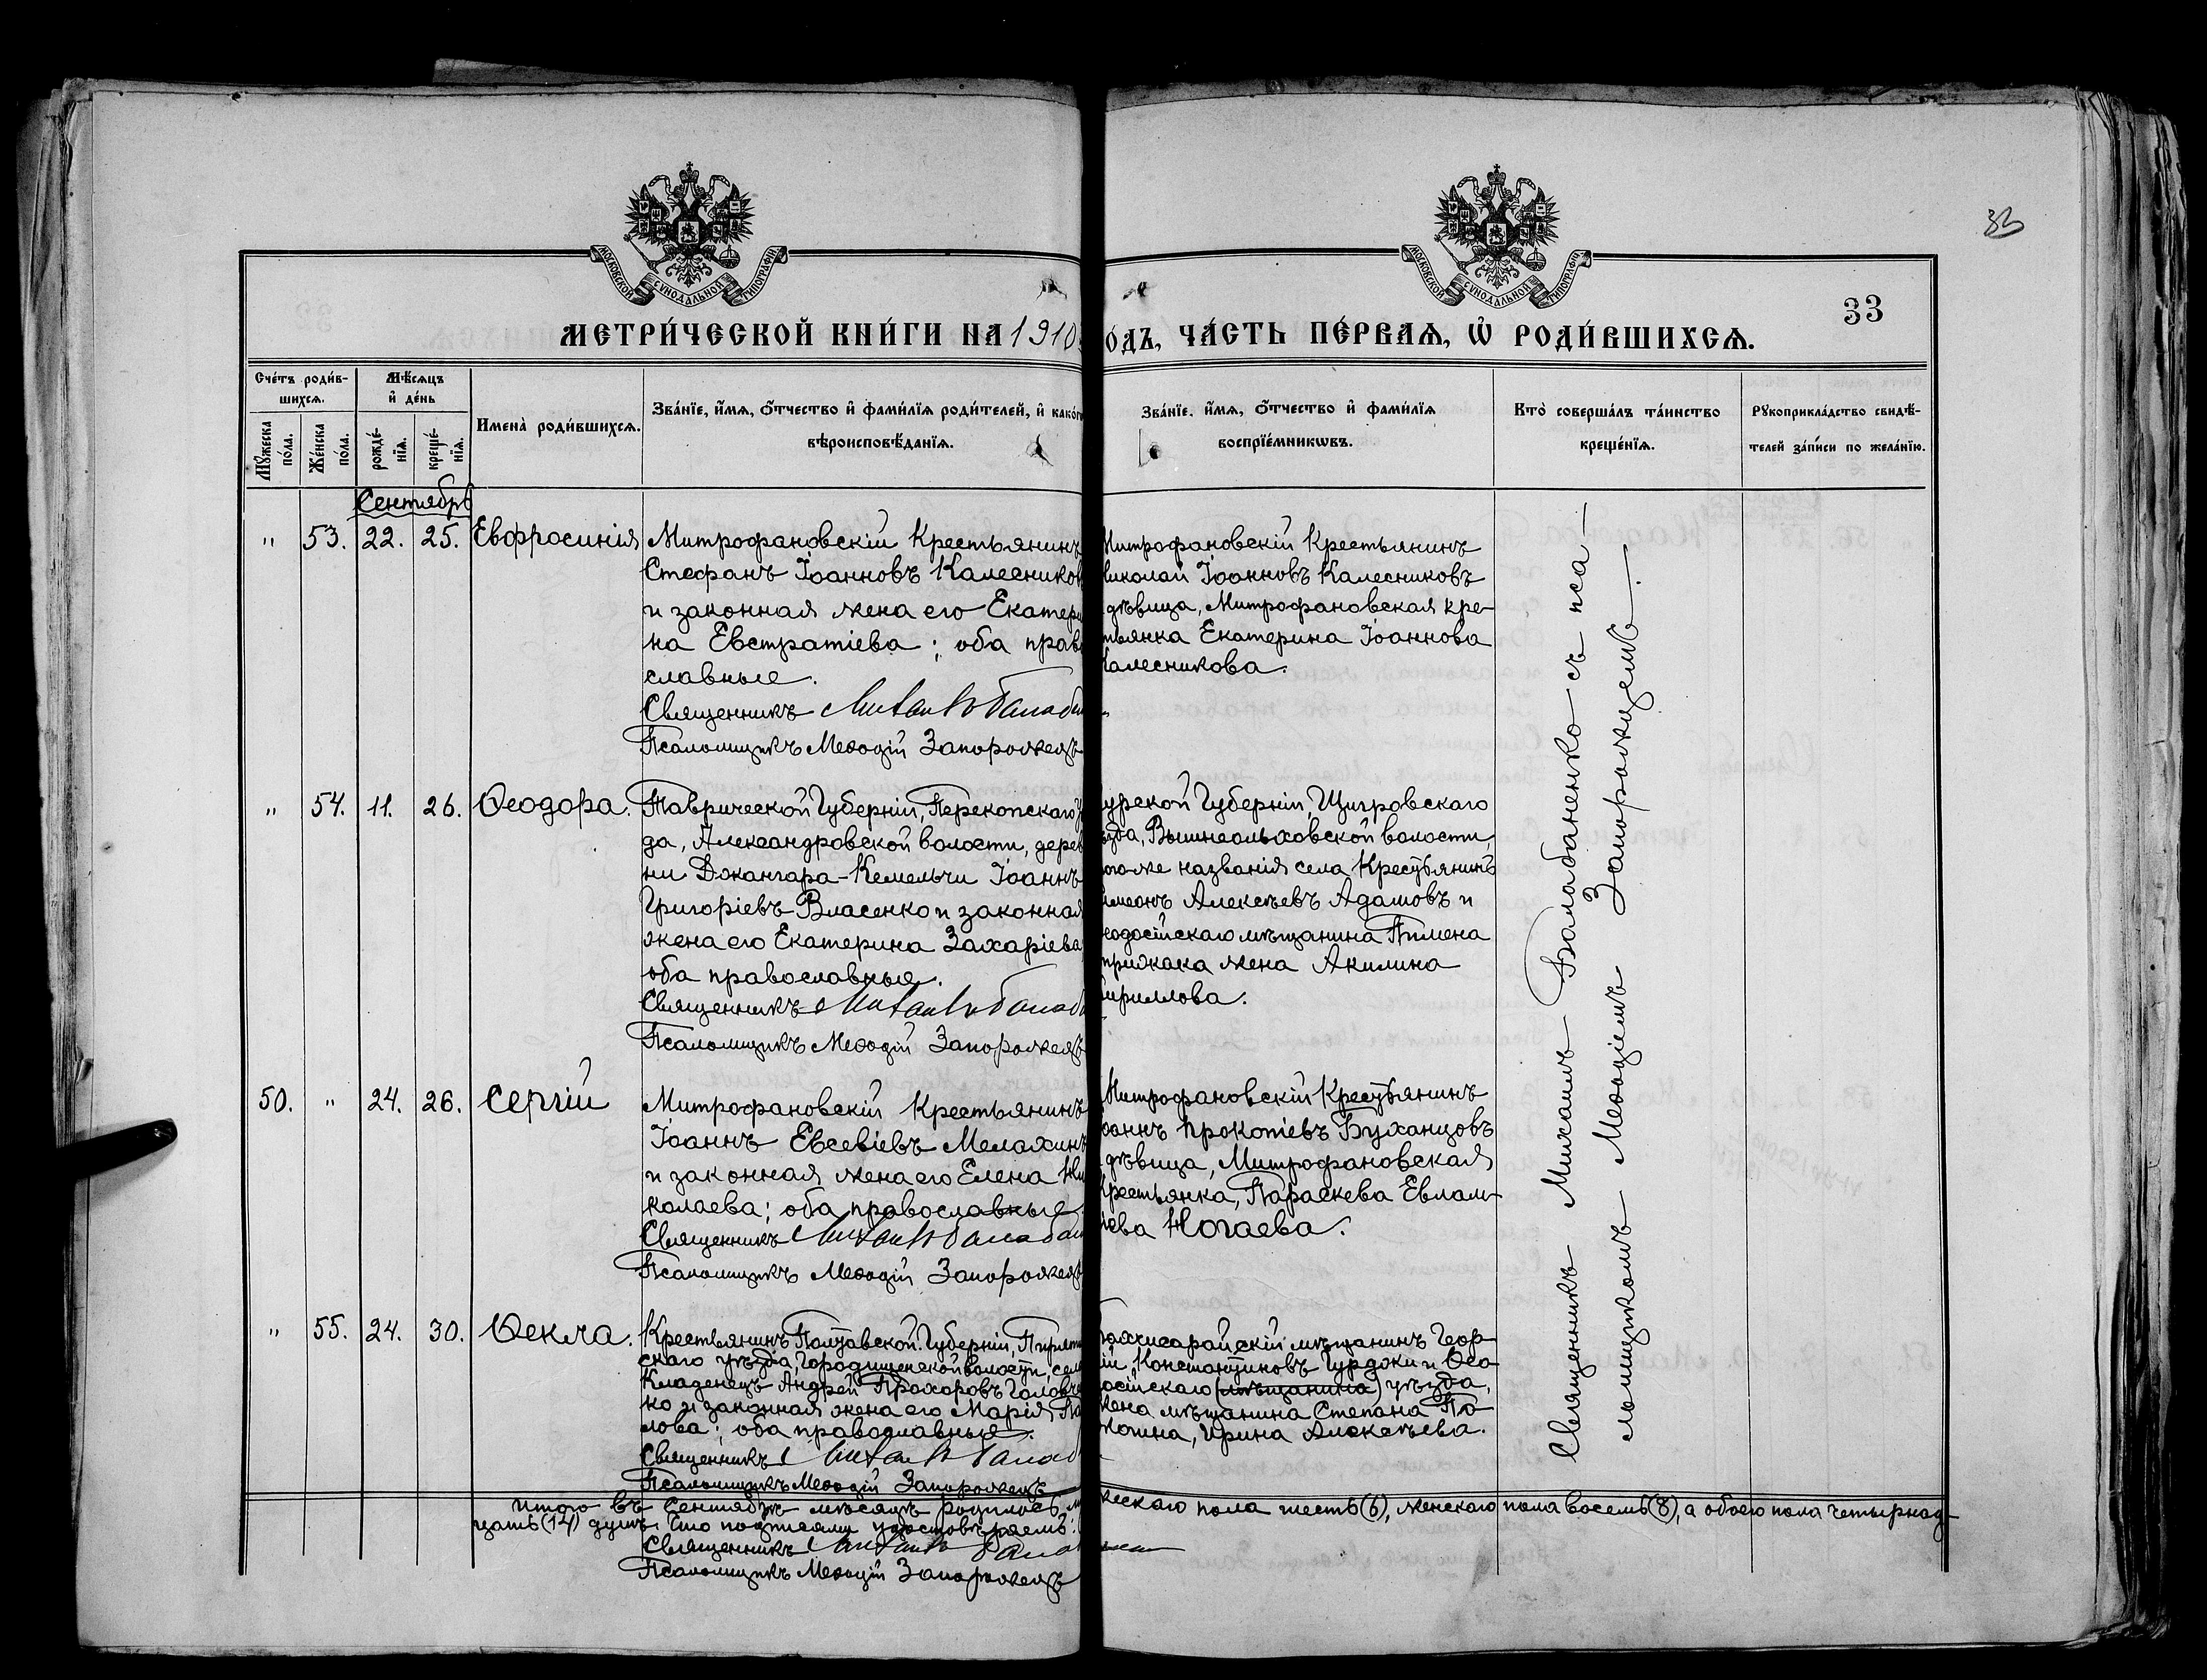 33
33
МОСКОВСКОЙ СѴНОДАЛЬНОЙ ТИПОГРАФІИ
МОСКОВСКОЙ СѴНОДАЛЬНОЙ ТИПОГРАФІИ
МЕТРИ́ЧЕСКОЙ КНИ́ГИ НА 1910
О́ДЪ, ЧА́СТЬ ПЕ́РВАѦ, Ѡ҆ РОДИ́ВШИХСѦ.
Сче́тъ роди́в-
шихсѧ.
Мꙋ́жеска по́ла.
Же́нска по́ла.
Мѣ́сѧцъ
и҆ де́нь
рожде́-
нїѧ.
креще́-
нїѧ.
Имена̀ роди́вшихсѧ.
Зва́нїе, и҆́мѧ, ѻ҆́тчество и҆ фами́лїѧ роди́телей, и҆ како́г
вѣроисповѣ́данїѧ.
Зва́нїе, и҆́мѧ, ѻ҆́тчество и҆ фами́лїѧ
воспрїе́мникѡвъ.
Кто̀ соверша́лъ та́инство
креще́нїѧ.
Рꙋкоприкла́дство свидѣ́-
телей за́писи по жела́нїю.
Сентябрь
" 53. 22. 25. Евфросинія
Митрофановскій Крестьянинъ
Стефанъ Іоанновъ Калесников
и законная жена его Екатери
на Евстратіева; оба прав
славные.
Священникъ Михаилъ Балаб
Псаломщикъ Меѳодій Запорожецъ
Митрофановскій Крестьянинъ
Николай Іоанновъ Калесниковъ
дѣвица, Митрофановская кре-
тьянка Екатерина Іоаннова
Калесникова.
" 54. 11. 26. Ѳеодора.
Таврической Губерніи, Перекопскаго у
да, Александровской волости, дерев
ни Джангара-Кемельчи Іоаннъ
Григоріевъ Власенко и законная
жена его Екатерина Захаріева
оба православные.
Священникъ Михаилъ Балаб
Псаломщикъ Меѳодій Запорожецъ
урской Губерніи, Щигровскаго
ѣзда, Вышнеольховской волости,
огоже названія села Крестьянинъ
имеонъ Алексѣевъ Адамовъ и
еодосійскаго мѣщанина Пимена
прижака жена Акилина
Кириллова.
50. " 24. 26. Сергій
Митрофановскій Крестьянинъ
Іоаннъ Евсевіевъ Мелахинъ
и законная жена его Елена Ни
колаева; оба православные.
Священникъ Михаилъ Балабан
Псаломщикъ Меѳодій Запорожецъ
Митрофановскій Крестьянинъ
оаннъ Прокопіевъ Буханцовъ
дѣвица, Митрофановская
Крестьянка, Параскева Евлам-
іева Ногаева.
" 55. 24. 30. Ѳекла.
Крестьянинъ Полтавской Губерніи, Пирят
скаго уѣзда, Городищенской волости, села
Кладенецъ Андрей Прохоровъ Головче
ко и законная жена его Марія Па
лова; оба православные.
Священникъ Михаилъ Балаб
Псаломщикъ Меѳодій Запорожецъ
ахчисарайскій мѣщанинъ Геор-
гій Константиновъ Гурджи и Ѳео-
осійскаго (мѣщанина) уѣзда,
жена мѣщанина Степана По-
Ирина Алексѣева.
Священникъ Михаилъ Балабаненко съ пса-
ломщикомъ Меѳодіемъ Запорожцемъ.
Итого въ Сентябрѣ мѣсяцѣ родилось м
жескаго пола шесть (6), женскаго пола восемь (8), а обоего пола четырнад-
цать (14) душъ. Что подписями удостовѣряемъ:
Священникъ Михаилъ Балабаненко
Псаломщикъ Меѳодій Запорожецъ